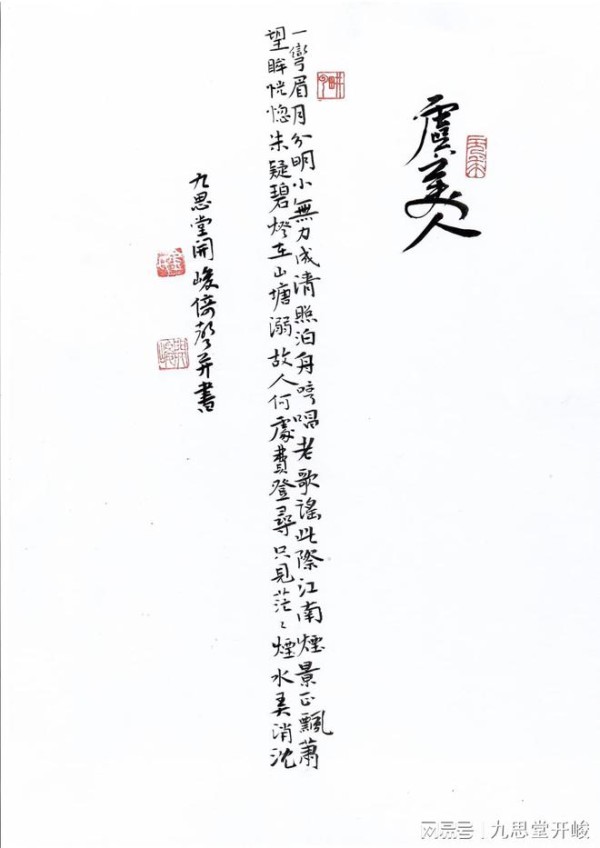 虞美人
一彎眉月分明小無力成清照泊舟哼唱老歌謠此際江南煙景正飄蕭
望眸恍惚朱疑碧燈在山塘溺故人何處費登尋只見茫〻煙水弄消沈
九思堂開峻倚聲并書
网易号 | 九思堂开峻